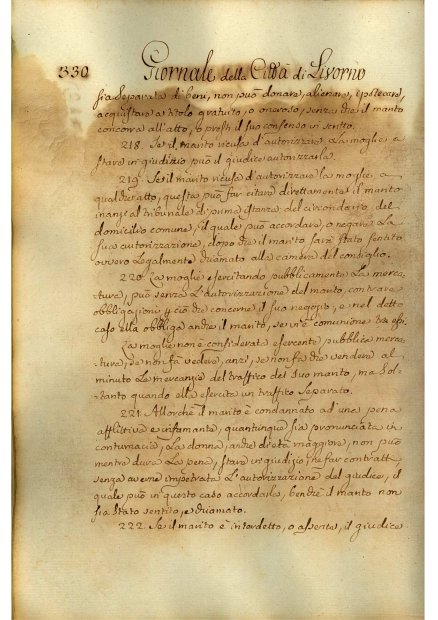 330 Giornale della Città di Livorno
sia separata di beni, non può donare, alienare, ipotecare,
acquistare a titolo gratuito, o oneroso, senza che il marito
concorra all'atto, o presti il suo consenso in scritto.
218. Se il marito ricusa d'autorizzare la moglie a
stare in giudizio può il giudice autorizzarla.
219. Se il marito ricusa d'autorizzare la moglie, a
qualche atto, questa può far citare direttamente il marito
inanzi al tribunale di prima istanza del circondario del
domicilio comune, il quale può accordare, o negare la
sua autorizzazione, dopo che il marito sarà stato sentito
ovvero legalmente chiamato alla camera del consiglio.
220. La moglie esercitando pubblicamente la merca-
tura, può senza l'autorizzazione del marito, contrarre
obbligazioni per ciò che concerne il suo negozio, e nel detto
caso ella obbliga anche il marito, se vi è comunione tra essi.
La moglie non è considerata esercente pubblica merca-
tura, se non fà vedere, anzi, se non fà che vendere al
minuto le mercanzie del traffico del suo marito, ma sol-
tanto quando ella esercita un traffico separato.
221. Allorchè il marito è condannato ad una pena
afflittiva e infamante, quantunque sia pronunciata in
contumacia, la donna, anche di età maggiore, non può
mentre dura la pena, stare in giudizio, ne far contratti
senza averne impetrata l'autorizzazione del giudice, il
quale può in questo caso accordarla, benchè il marito non
sia stato sentito, e chiamato.
222. Se il marito è interdetto, o assente, il giudice